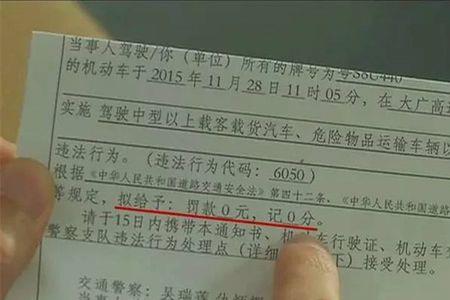 当事人驾驶/你（单位）所有的牌号为粤S8U440
的机动车于 2015 年 11 月 28 日 11 时 05 分，在 大广高
实施 驾驶中型以上载客载货汽车、危险物品运输车辆以
违法行为。（违法行为代码：6050）
根据《中华人民共和国道路交通安全法》第四十二条、《中华人民共和
等规定，拟给予：罚款 0 元，记 0 分。
请于15日内携带本通知书、机动车行驶证、机动车
警察支队违法行为处理点（详细 下）接受处理。
交通警察：吴瑞莲